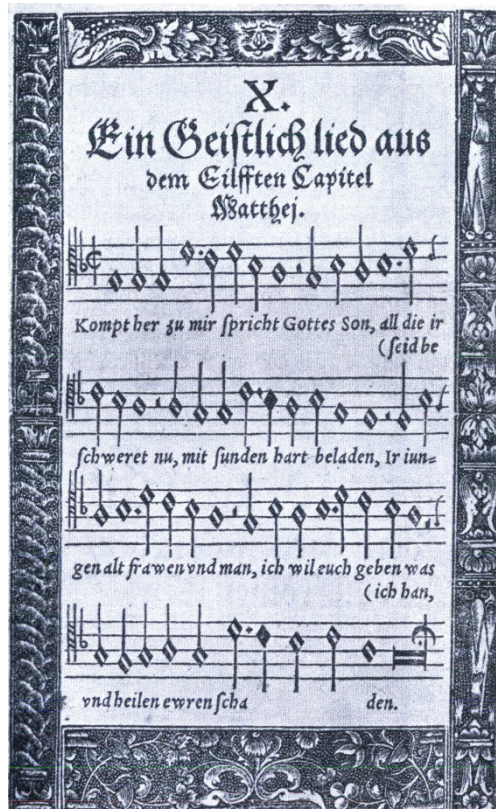 X.
Ein Geistlich lied aus
dem Eilfften Capitel
Matthej.
Kompt her zu mir spricht Gottes Son, all die ir
(seid be
schweret nu, mit sunden hart beladen, Ir iun=
gen alt frawen vnd man, ich wil euch geben was
(ich han,
vnd heilen ewren scha den.